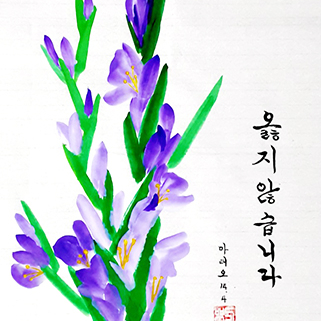 옳지않습니다
마태오 14.4